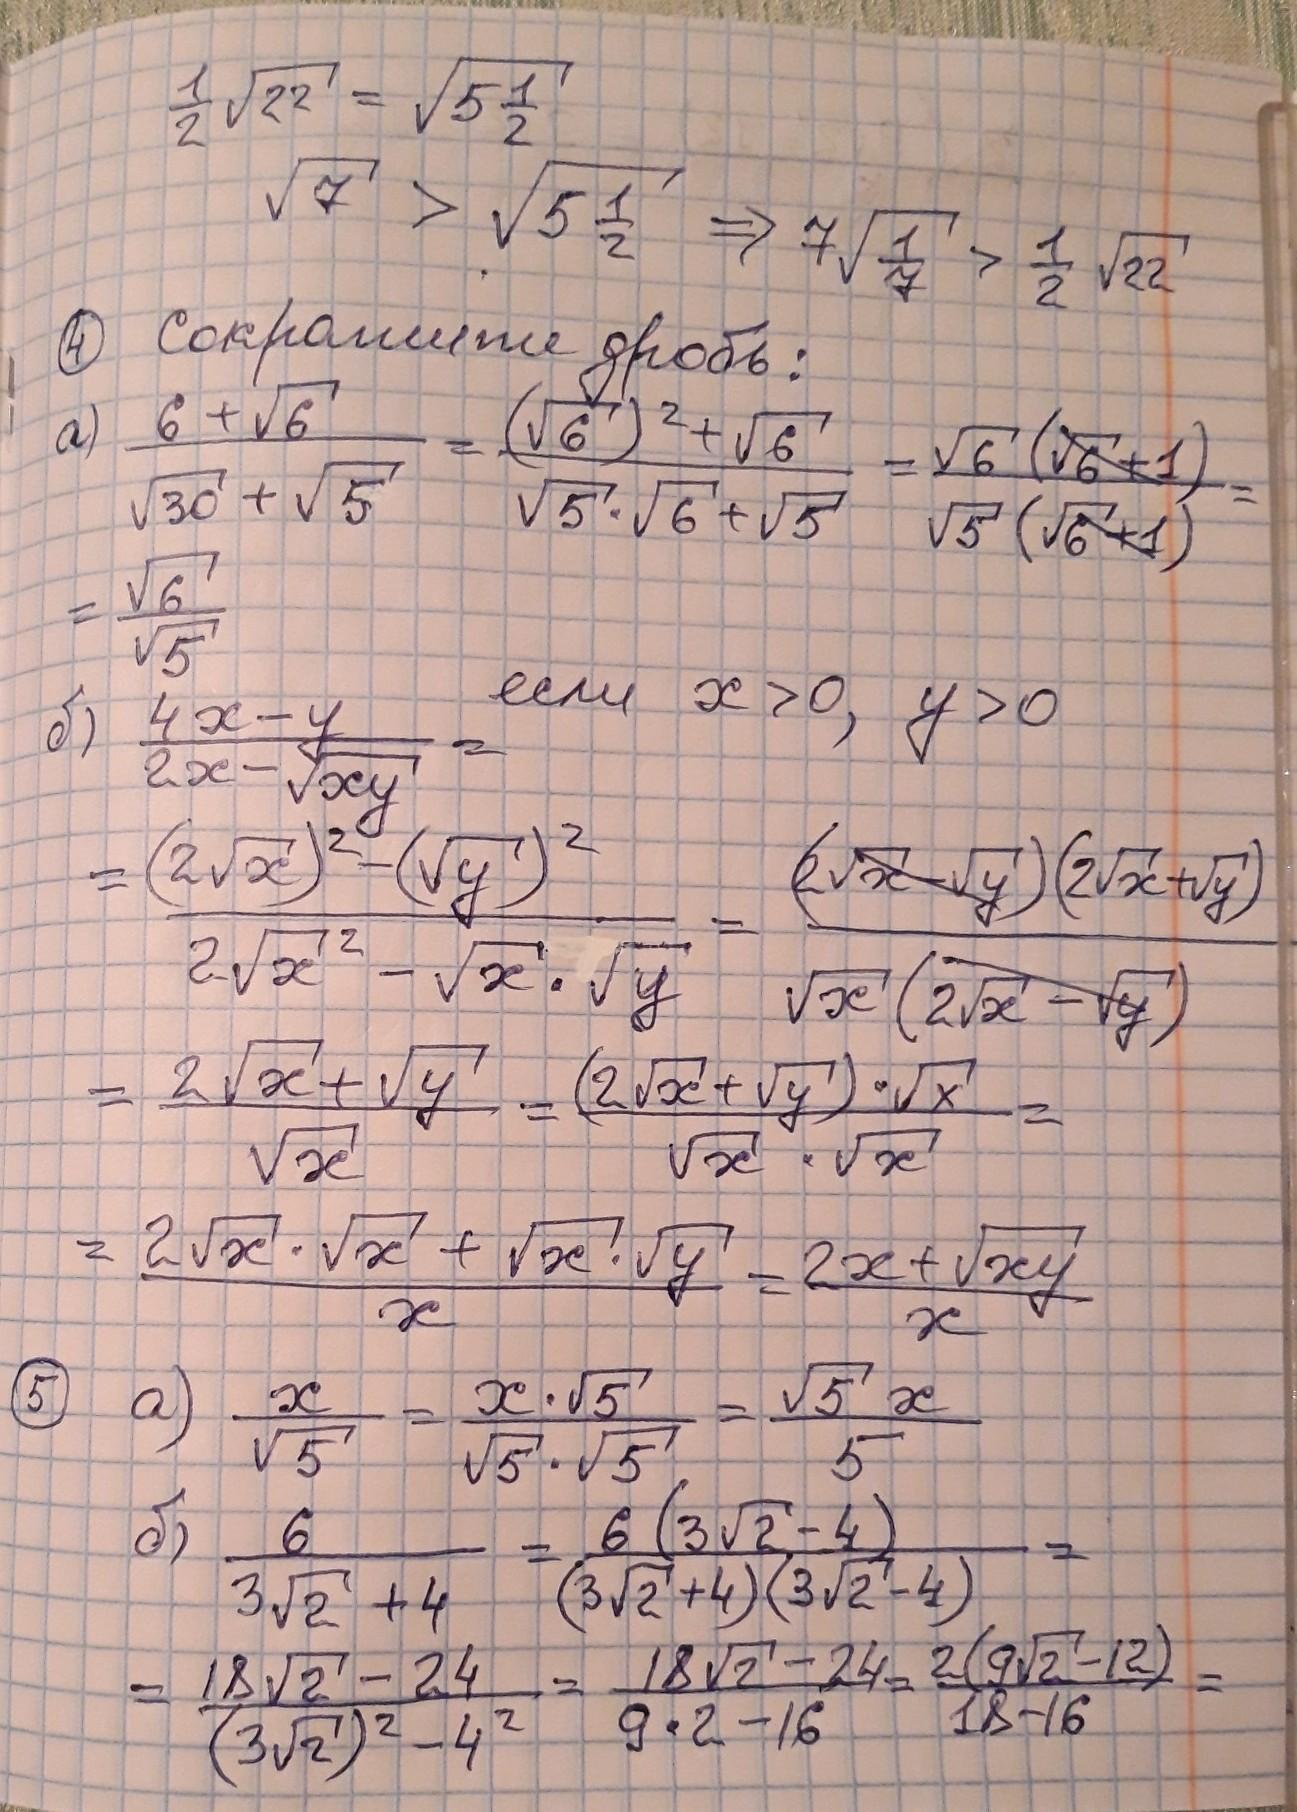 1/2 √22 = √(5 1/2)
√7 > √(5 1/2) ⇒ 7√(1/7) > 1/2 √22
④ Сократите дробь:
а) (6 + √6)/(√30 + √5) = ((√6)² + √6)/(√5·√6 + √5) = √6(√6+1)/√5(√6+1) =
= √6/√5
б) (4x − y)/(2x − √xy) = если x > 0, y > 0
= ((2√x)² − (√y)²)/(2√x² − √x·√y) = (2√x − √y)(2√x + √y)/√x(2√x − √y)
= (2√x + √y)/√x = (2√x + √y)·√x/√x·√x =
= (2√x·√x + √x·√y)/x = (2x + √xy)/x
⑤ а) x/√5 = x·√5/√5·√5 = √5 x/5
б) 6/(3√2 + 4) = 6(3√2 − 4)/(3√2 + 4)(3√2 − 4) =
= (18√2 − 24)/((3√2)² − 4²) = (18√2 − 24)/(9·2 − 16) = 2(9√2 − 12)/(18 − 16) =